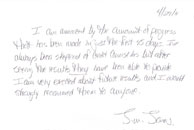 I am amazed by the amount of progress
that has been made in just the first 15 days. I've
always been skeptical of these claims but after
seeing the results they have been able to provide
I am very excited about future results and I would
strongly recommend them to anyone.